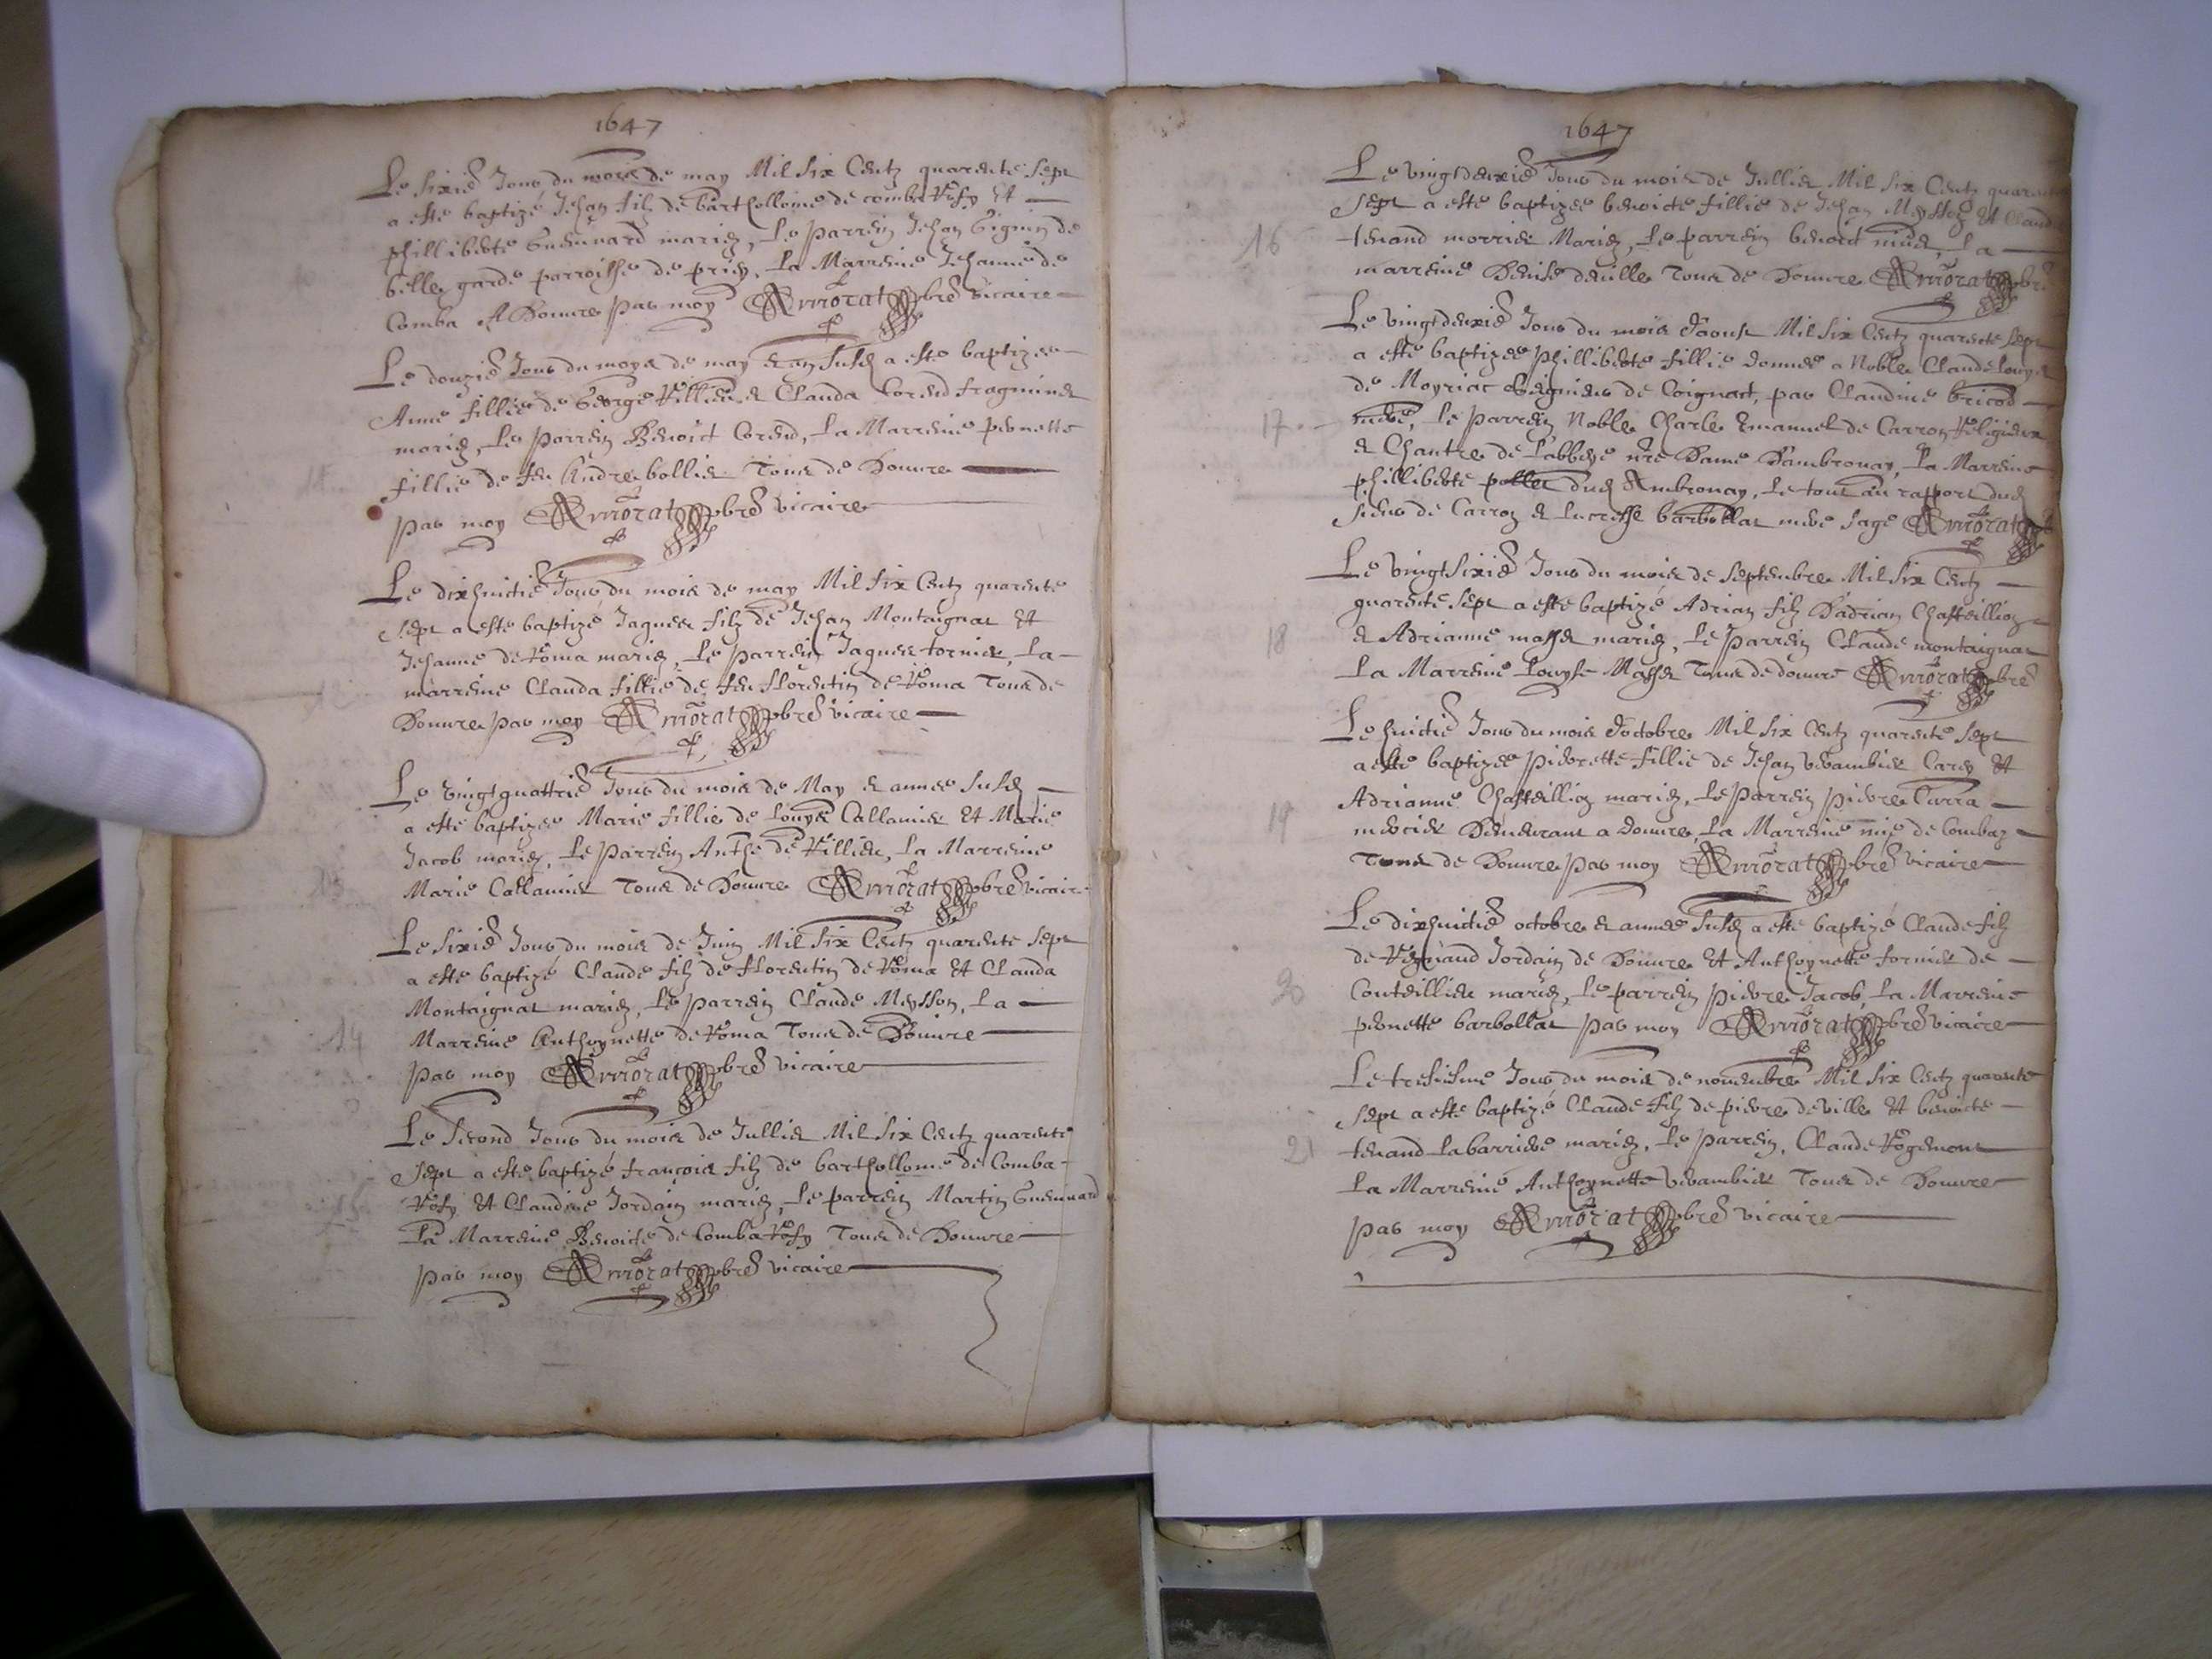 1647
Le sixie Jour du mois de may Mil six Centz quarente sept
a este baptizé Jehan filz de Barthollome de combe Rosy Et
philliberte Guennard mariez, Le parrein Jehan Gignin de
belle garde parroisse de priey, La Marreine Jehanne de
Comba A Douure par moy Armorat pbre vicaire
Le douzie Jour du moys de may et an susd a este baptizee
Anne fillie de George Villieu et Clauda Corend
mariez, Le parrein Benoict Corend, La Marreine pernette
fillie de feu Andre bollier Tous de Douure
par moy Armorat pbre vicaire
Le dixhuictie Jour du mois de may Mil six Centz quarente
sept a este baptizé Jaques filz de Jehan Montaignat Et
Jehanne de Roma mariez, Le parrein Jaques tornier, La
marreine Clauda fillie de feu florentin de Roma Tous de
Douure par moy Armorat pbre vicaire
Le vingtquattrie Jour du mois de May et annee susd
a este baptizee Marie fillie de Louys Callamier Et Marie
Jacob mariez, Le parrein Anthe de Villieu, La Marreine
Marie Callamier Tous de Douure Armorat pbre vicaire
Le sixie Jour du mois de Juin Mil six Centz quarente sept
a este baptizé Claude filz de florentin de Roma Et Clauda
Montaignat mariez, Le parrein Claude Meysson, La
14 Marreine Anthoynette de Roma Tous de Douure
par moy Armorat pbre vicaire
Le second Jour du mois de Jullied Mil six Centz quarente
sept a este baptizé françois filz de barthollome de Comba
15 Rosy Et Claudine Jordain mariez, Le parrein Martin Guennard
La Marreine Benoicte de Comba Rosy Tous de Douure
par moy Armorat pbre vicaire
1647
Le vingtdeuxie Jour du mois de Jullied Mil six Centz quarente
sept a este baptizee benoicte fillie de Jehan Meysson Et Claud
16 tenand morrier Mariez, Le parrein benoict La
marreine Denise deville Tous de Douure Armorat pbre
Le vingtdeuxie Jour du mois d'aoust Mil six Centz quarente sept
a este baptizee philliberte fillie donnee a Noble Claude Louys
de Moyriac seigneur de Coignat, par Claudine bricod
17 mere, Le parrein Noble Charle Emanuel de Carron Religieux
et Chantre de l'abbeye nre Dame d'ambronay, La Marreine
philliberte pollet dud Ambronay, Le tout au rapport dud
sieur de Carron et Lucresse barbollat mere sage Armorat pbre
Le vingtsixie Jour du mois de septembre Mil six Centz
quarente sept a este baptizé Adrian filz d'adrian Chasteillion
18 et Adrianne masset mariez, Le parrein Claude montaignat
La Marreine Louyse Masset Tous de douure Armorat pbre
Le huictie Jour du mois d'octobre Mil six Centz quarente sept
a este baptizee pierrette fillie de Jehan verambier Et
Adrianne Chasteillion mariez, Le parrein pierre Carra
19 mercier demeurant a douure, La Marreine de Combaz
Tous de Douure par moy Armorat pbre vicaire
Le dixhuictie octobre et annee susd a este baptizé Claude filz
de Jordain de Douure Et Anthoynette fornier de
20 Couteillieu mariez, Le parrein pierre Jacob, La Marreine
pernette barbollat par moy Armorat pbre vicaire
Le tresiesme Jour du mois de novembre Mil six Centz quarente
sept a este baptizé Claude filz de pierre deville Et benoicte
21 tenand Labarriere mariez, Le parrein, Claude Rogemont
La Marreine Anthoynette verambier Tous de Douure
par moy Armorat pbre vicaire